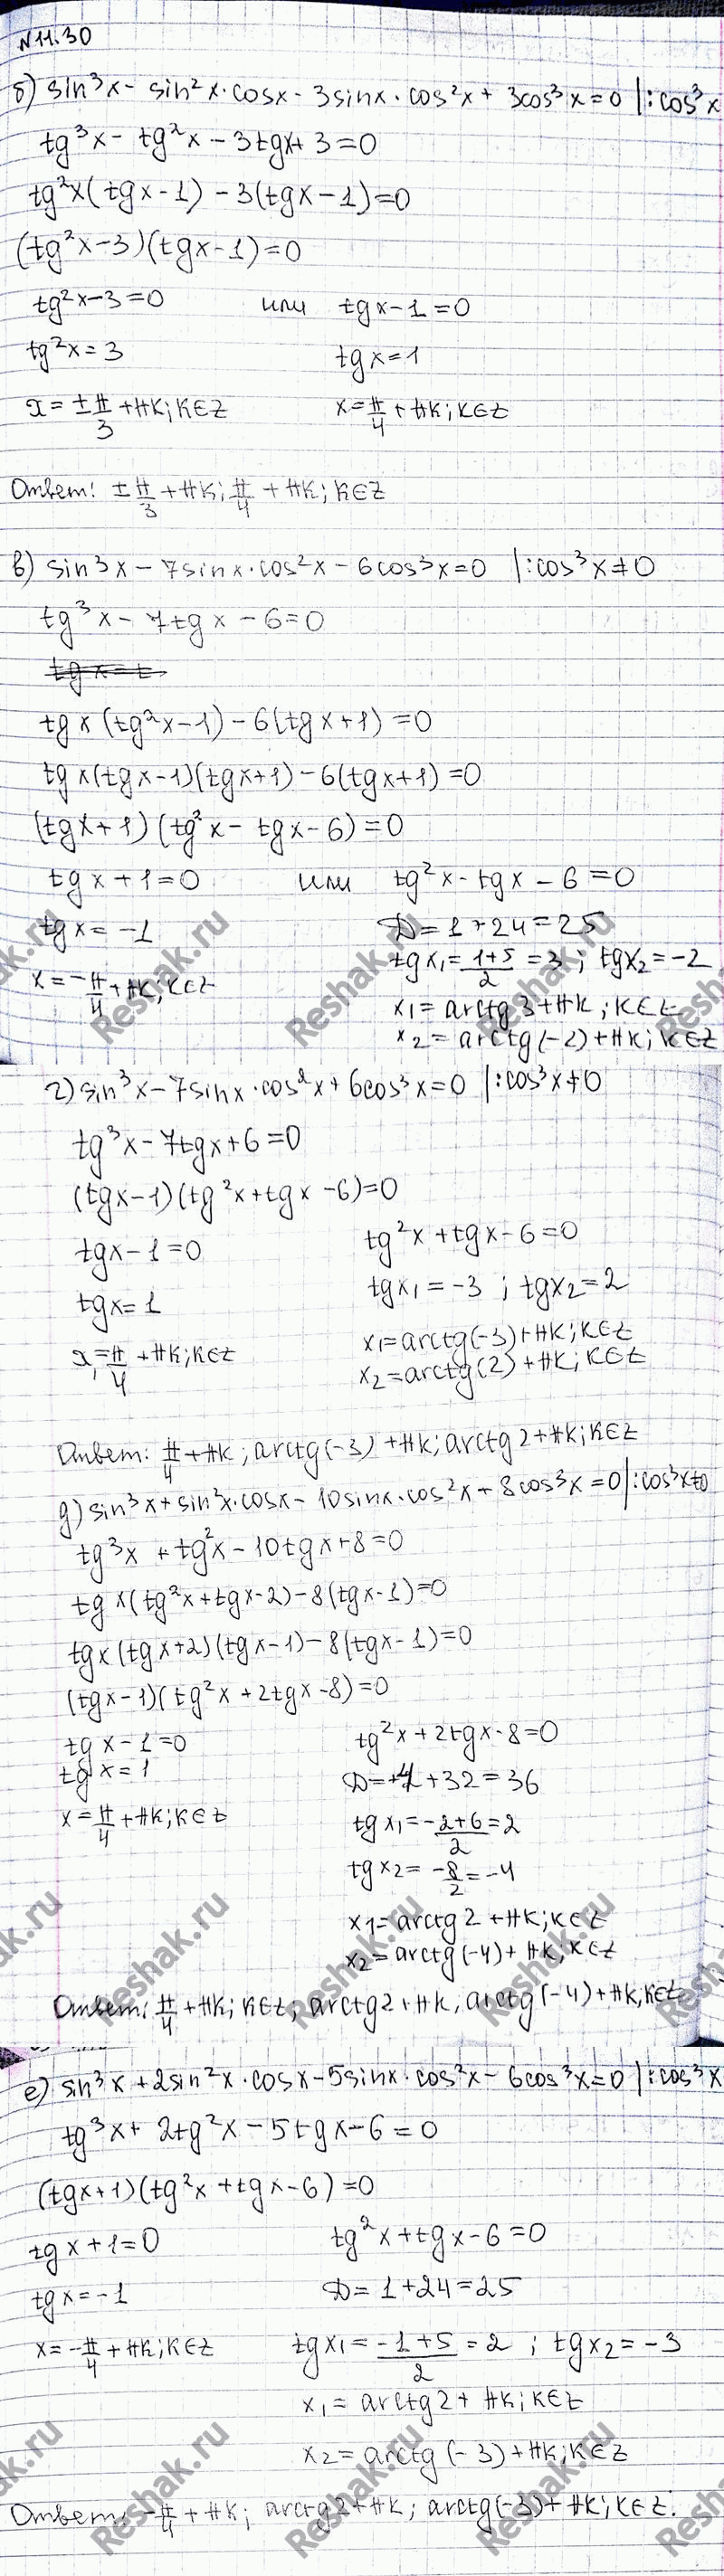 N11.30
б) sin³x - sin²x·cosx - 3sinx·cos²x + 3cos³x = 0 |:cos³x
tg³x - tg²x - 3tgx + 3 = 0
tg²x(tgx - 1) - 3(tgx - 1) = 0
(tg²x - 3)(tgx - 1) = 0
tg²x - 3 = 0 или tgx - 1 = 0
tg²x = 3 tgx = 1
x = ±π/3 + πk; k∈Z x = π/4 + πk; k∈Z
Ответ: ±π/3 + πk; π/4 + πk; k∈Z
в) sin³x - 7sinx·cos²x - 6cos³x = 0 |:cos³x ≠ 0
tg³x - 7tgx - 6 = 0
tgx = t
tgx(tg²x - 1) - 6(tgx + 1) = 0
tgx(tgx - 1)(tgx + 1) - 6(tgx + 1) = 0
(tgx + 1)(tg²x - tgx - 6) = 0
tgx + 1 = 0 или tg²x - tgx - 6 = 0
tgx = -1 D = 1 + 24 = 25
tgx₁ = (1+5)/2 = 3; tgx₂ = -2
x = -π/4 + πk; k∈Z
x₁ = arctg3 + πk; k∈Z
x₂ = arctg(-2) + πk; k∈Z
г) sin³x - 7sinx·cos²x + 6cos³x = 0 |:cos³x ≠ 0
tg³x - 7tgx + 6 = 0
(tgx - 1)(tg²x + tgx - 6) = 0
tgx - 1 = 0 tg²x + tgx - 6 = 0
tgx = 1 tgx₁ = -3; tgx₂ = 2
x = π/4 + πk; k∈Z x₁ = arctg(-3) + πk; k∈Z
x₂ = arctg(2) + πk; k∈Z
Ответ: π/4 + πk; arctg(-3) + πk; arctg2 + πk; k∈Z
д) sin³x + sin²x·cosx - 10sinx·cos²x + 8cos³x = 0 |:cos³x ≠ 0
tg³x + tg²x - 10tgx + 8 = 0
tgx(tg²x + tgx - 2) - 8(tgx - 1) = 0
tgx(tgx + 2)(tgx - 1) - 8(tgx - 1) = 0
(tgx - 1)(tg²x + 2tgx - 8) = 0
tgx - 1 = 0 tg²x + 2tgx - 8 = 0
tgx = 1 D = +4 + 32 = 36
x = π/4 + πk; k∈Z tgx₁ = (-2+6)/2 = 2
tgx₂ = -8/2 = -4
x₁ = arctg2 + πk; k∈Z
x₂ = arctg(-4) + πk; k∈Z
Ответ: π/4 + πk; k∈Z; arctg2 + πk, arctg(-4) + πk, k∈Z
е) sin³x + 2sin²x·cosx - 5sinx·cos²x - 6cos³x = 0 |:cos³x
tg³x + 2tg²x - 5tgx - 6 = 0
(tgx + 1)(tg²x + tgx - 6) = 0
tgx + 1 = 0 tg²x + tgx - 6 = 0
tgx = -1 D = 1 + 24 = 25
x = -π/4 + πk; k∈Z tgx₁ = (-1+5)/2 = 2; tgx₂ = -3
x₁ = arctg2 + πk; k∈Z
x₂ = arctg(-3) + πk; k∈Z
Ответ: -π/4 + πk; arctg2 + πk; arctg(-3) + πk; k∈Z.
Reshak.ru